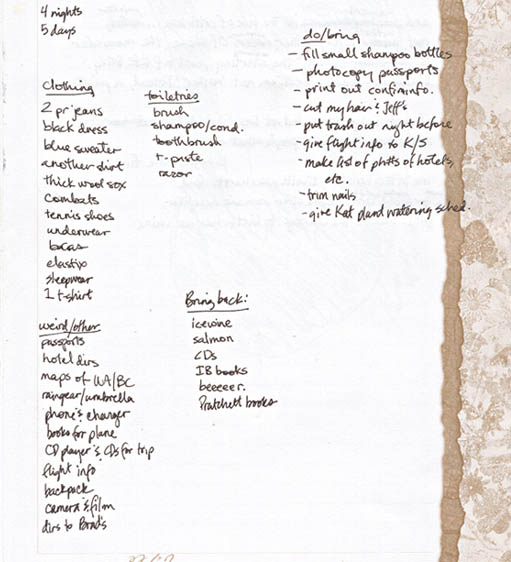 4 nights
5 days
clothing
2 pr jeans
black dress
blue sweater
another shirt
thick wool sox
combats
tennis shoes
underwear
bras
elastix
sleepwear
1 t-shirt
toiletries
brush
shampoo/cond.
toothbrush
t-paste
razor
do/bring
- fill small shampoo bottles
- photocopy passports
- print out confirm info.
- cut my hair & Jeff's
- put trash out night before
- give flight info to K/S
- make list of ph#s of hotels,
etc.
- trim nails
- give Kat plant watering sched.
weird/other
passports
hotel dirs
maps of WA/BC
raingear/umbrella
phone & charger
books for plane
CD player & CDs for trip
flight info
backpack
camera & film
dirs to
Bring back:
icewine
salmon
CDs
IB books
beeeeer.
Pratchett books